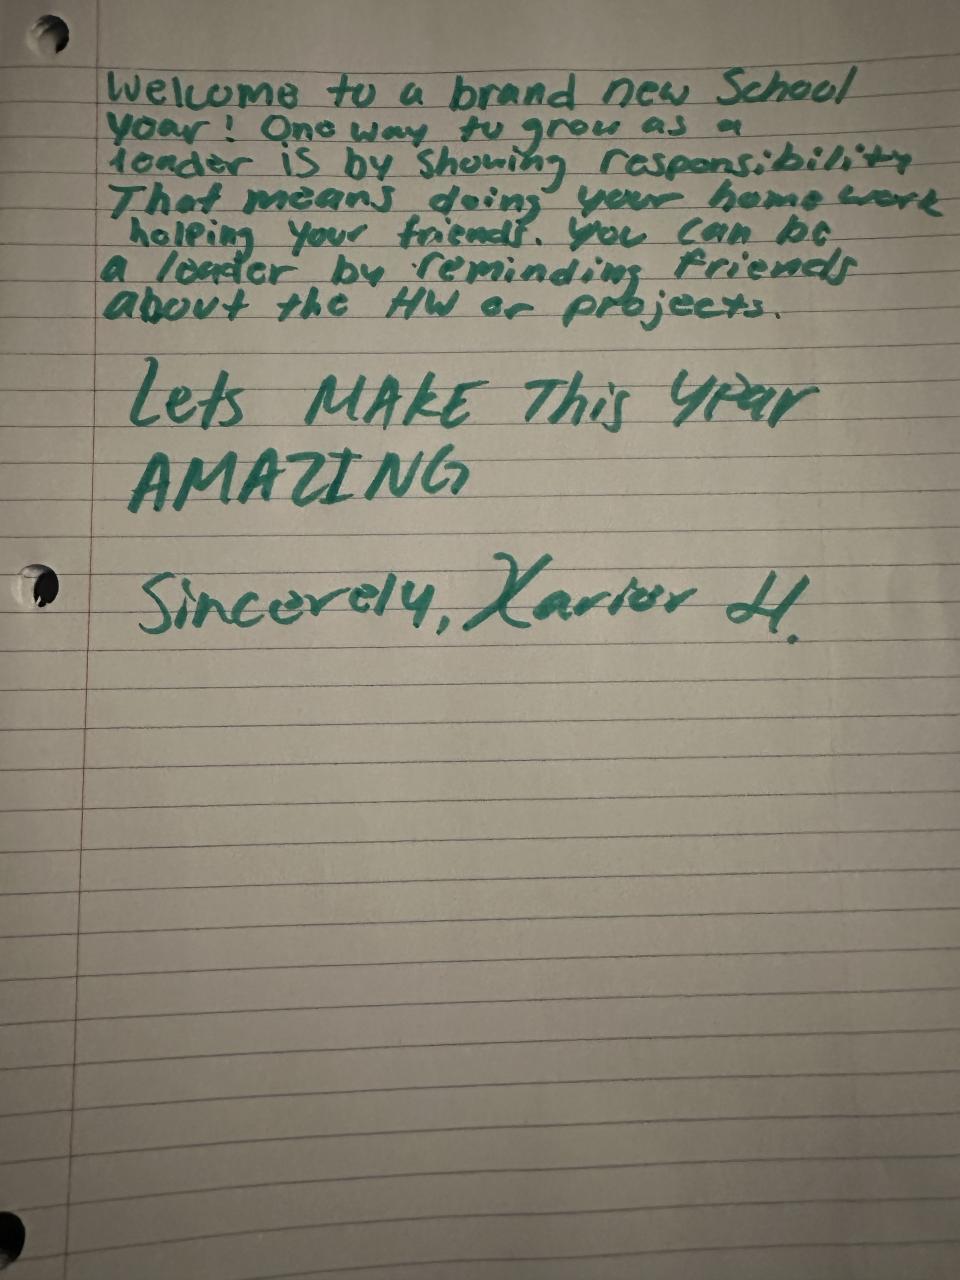 Welcome to a brand new School
year! One way to grow as a
leader is by showing responsibility
That means doing your home work
helping your friends. You can be
a leader by reminding friends
about the HW or projects.
Lets MAKE This Year
AMAZING
Sincerely, Xavier H.